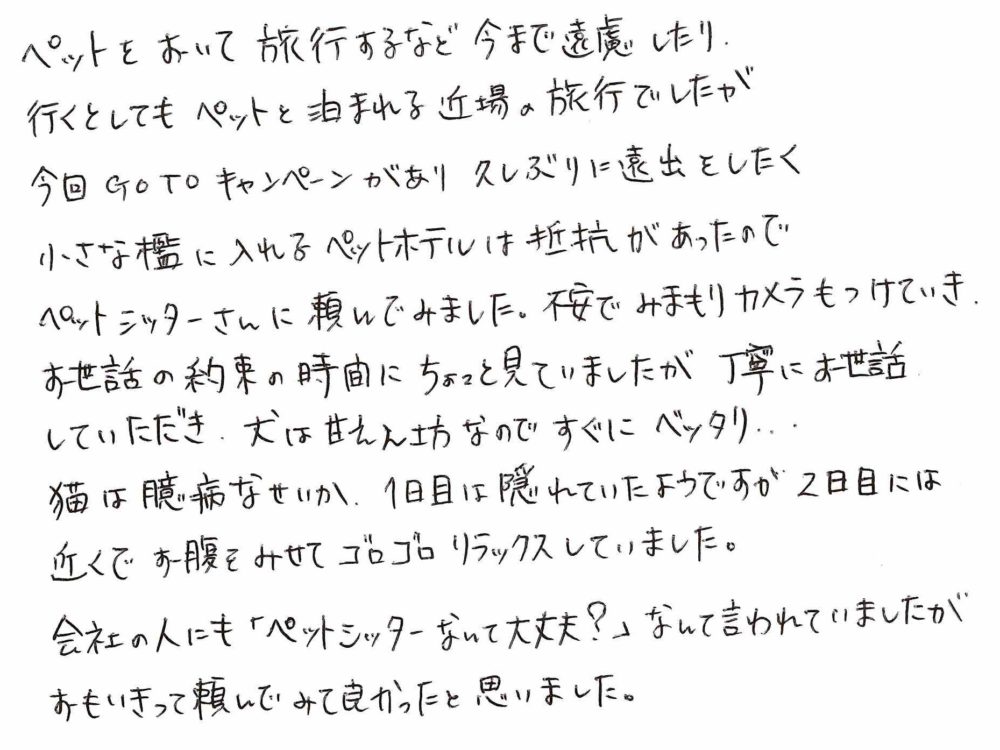 ペットをおいて旅行するなど今まで遠慮したり.
行くとしてもペットと泊まれる近場の旅行でしたが
今回GOTOキャンペーンがあり久しぶりに遠出をしたく
小さな檻に入れるペットホテルは抵抗があったので
ペットシッターさんに頼んでみました。不安でみまもりカメラもつけていき.
お世話の約束の時間にちょっと見ていましたが丁寧にお世話
していただき.犬は甘えん坊なのですぐにベッタリ...
猫は臆病なせいか、1日目は隠れていたようですが2日目には
近くでお腹をみせてゴロゴロリラックスしていました。
会社の人にも「ペットシッターなんて大丈夫?」なんて言われていましたが
おもいきって頼んでみて良かったと思いました。